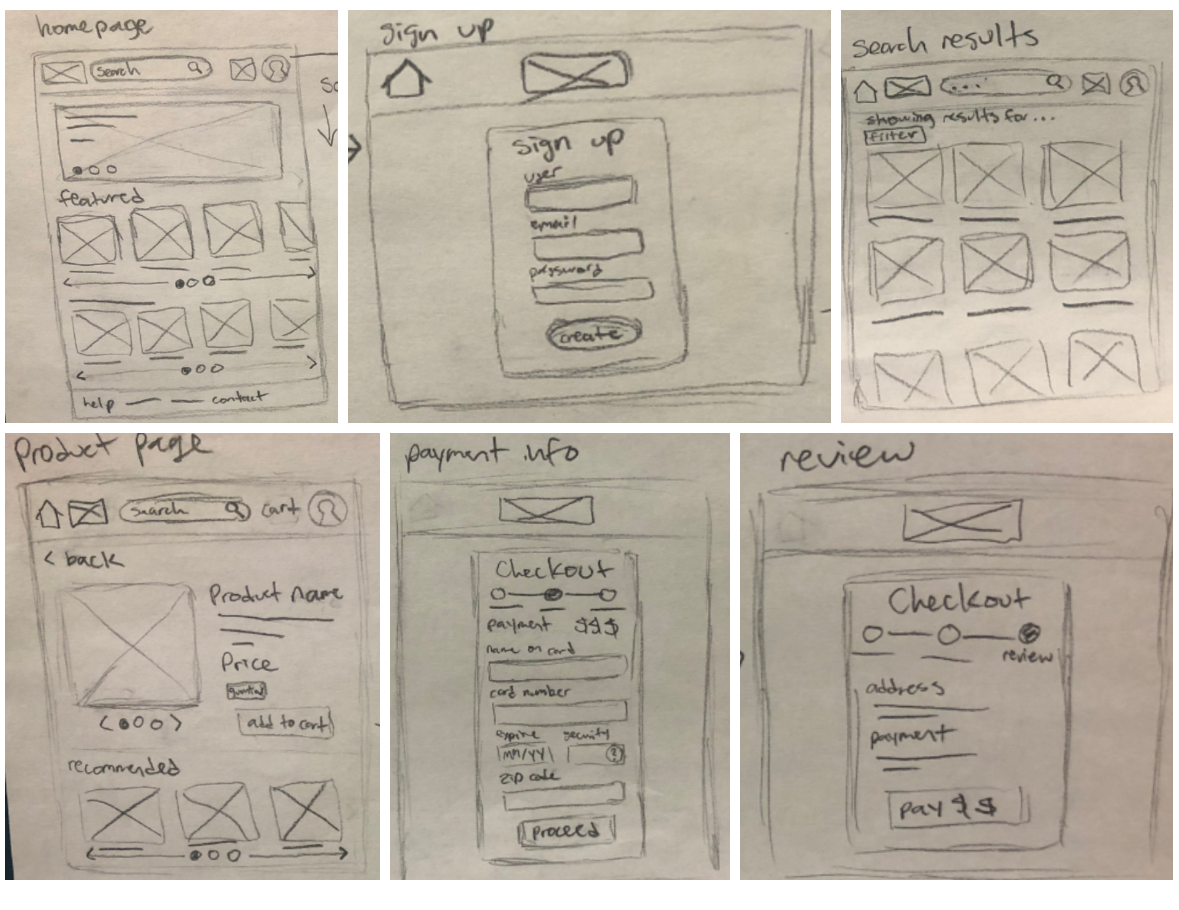 homepage
search
featured
help contact
sign up
sign up
user
email
password
create
search results
...
showing results for...
filter
Product page
search cart
< back
Product name
Price
add to cart
recommended
payment info
Checkout
payment $$$
name on card
card number
expire security
MM/YY ?
zip code
proceed
review
Checkout
review
address
payment
pay $ $